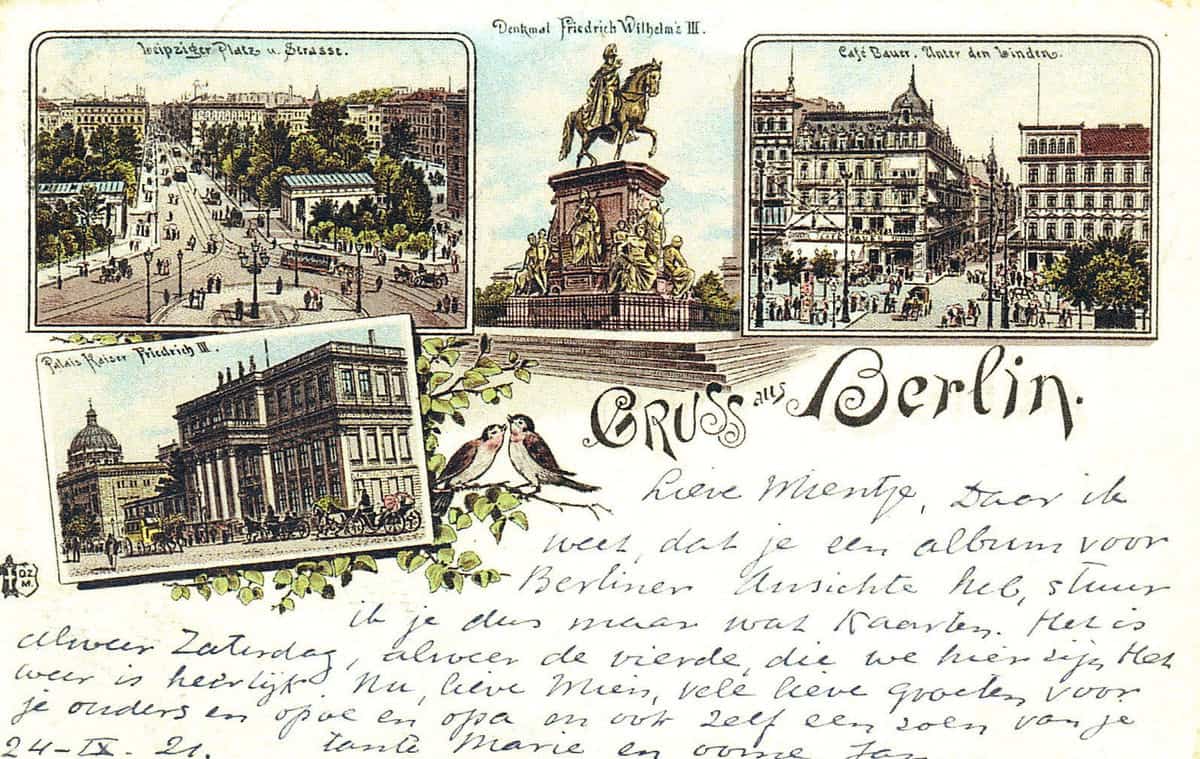 Leipziger Platz u. Strasse.
Denkmal Friedrich Wilhelm's III.
Café Bauer. Unter den Linden.
Palais Kaiser Friedrich III.
GRUSS aus Berlin.
DZ.
M.
Lieve Mientje, Daar ik
weet, dat je een album voor
Berliner Ansichte heb, stuur
ik je dus maar wat Kaarten. Het is
alweer Zaterdag, alweer de vierde, die we hier zijn. Het
weer is heerlijk. Nu, lieve Mien, vele lieve groeten voor
je ouders en opoe en opa en ook zelf een zoen van je
24-IX-21. tante Marie en oome Jan